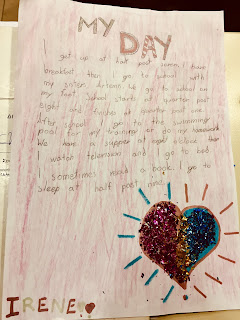 MY DAY
I get up at half past seven. I have
breakfast, then I go to school with
my sister. We go to school on
my foot. School starts at quarter past
eight and finishes at quarter past one.
After school I go to the swimming
pool for my training or do my homework
We have a supper at eight o'clock then
I watch television and I go to bed
I sometimes read a book. I go to
sleep at half past nine.
IRENE!!